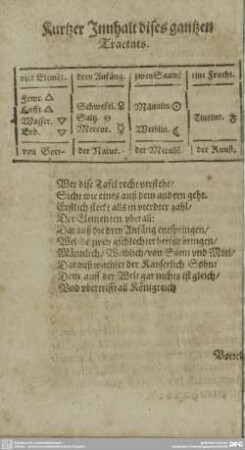 Kurtzer Innhalt dises gantzen
Tractats.
vier Elemēt. dreu Anfäng. zween Saamē eine Frucht.
Fewr. △
Lufft. 🜁 Schwefel. 🜍 Männlin. ☉
Wasser. ▽ Saltz. 🜔 Tinctur.
Erd. 🜃 Mercur. ☿ Weiblin. ☾
von Gott. der Natur. der Metall. der Kunst.
Wer dise Tafel recht versteht/
Sicht wie eines auß dem andern geht.
Erstlich steckt alls in vierdter zahl/
Der Elementen vberall:
Darauß die drey Anfäng entspringen/
Welche zwey gschlechter herfür bringen/
Männlich/ Weiblich/ von Sonn vnd Mon/
Darauß wachset der Kayserlich Sohn/
Dem auff der Welt gar nichts ist gleich/
Vnd vbertrifft all Königreich